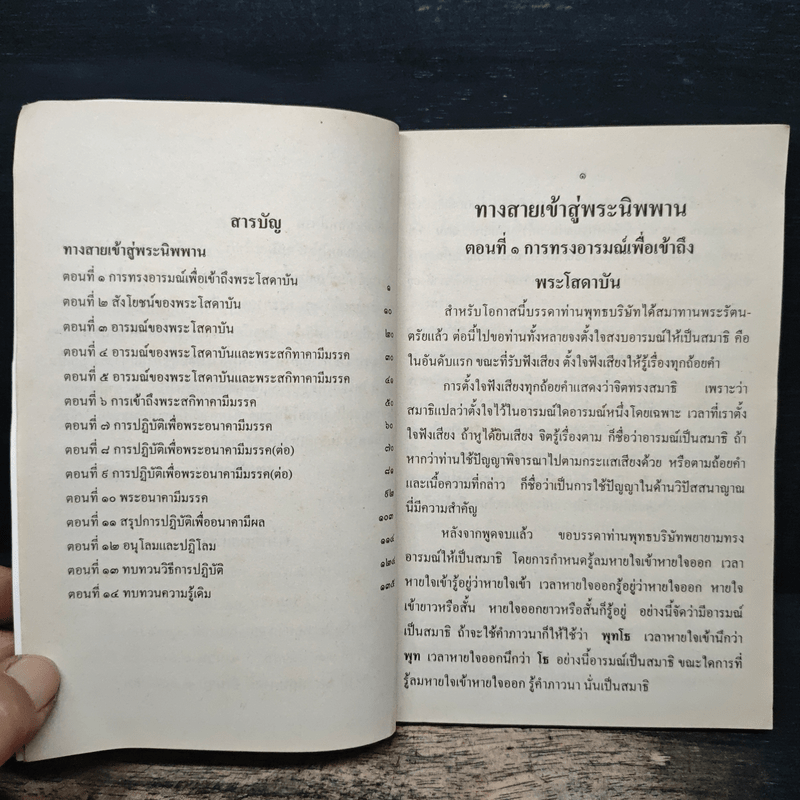 สารบัญ
ทางสายเข้าสู่พระนิพพาน
ตอนที่ ๑ การทรงอารมณ์เพื่อเข้าถึงพระโสดาบัน ๑
ตอนที่ ๒ สังโยชน์ของพระโสดาบัน ๑๐
ตอนที่ ๓ อารมณ์ของพระโสดาบัน ๒๐
ตอนที่ ๔ อารมณ์ของพระโสดาบันและพระสกิทาคามีมรรค ๓๐
ตอนที่ ๕ อารมณ์ของพระโสดาบันและพระสกิทาคามีมรรค ๔๑
ตอนที่ ๖ การเข้าถึงพระสกิทาคามีมรรค ๕๐
ตอนที่ ๗ การปฏิบัติเพื่อพระอนาคามีมรรค ๖๐
ตอนที่ ๘ การปฏิบัติเพื่อพระอนาคามีมรรค(ต่อ) ๗๐
ตอนที่ ๙ การปฏิบัติเพื่อพระอนาคามีมรรค(ต่อ) ๘๑
ตอนที่ ๑๐ พระอนาคามีมรรค ๙๒
ตอนที่ ๑๑ สรุปการปฏิบัติเพื่ออนาคามีผล ๑๐๓
ตอนที่ ๑๒ อนุโลมและปฏิโลม ๑๑๔
ตอนที่ ๑๓ ทบทวนวิธีการปฏิบัติ
ตอนที่ ๑๔ ทบทวนความรู้เดิม
๑
ทางสายเข้าสู่พระนิพพาน
ตอนที่ ๑ การทรงอารมณ์เพื่อเข้าถึง
พระโสดาบัน
สำหรับโอกาสนี้บรรดาท่านพุทธบริษัทได้สมาทานพระรัตน-
ตรัยแล้ว ต่อนี้ไปขอท่านทั้งหลายจงตั้งใจสงบอารมณ์ให้เป็นสมาธิ คือ
ในอันดับแรก ขณะที่รับฟังเสียง ตั้งใจฟังเสียงให้รู้เรื่องทุกถ้อยคำ
การตั้งใจฟังเสียงทุกถ้อยคำแสดงว่าจิตทรงสมาธิ เพราะว่า
สมาธิแปลว่าตั้งใจไว้ในอารมณ์ใดอารมณ์หนึ่งโดยเฉพาะ เวลาที่เราตั้ง
ใจฟังเสียง ถ้าหูได้ยินเสียง จิตรู้เรื่องตาม ก็ชื่อว่าอารมณ์เป็นสมาธิ ถ้า
หากว่าท่านใช้ปัญญาพิจารณาไปตามกระแสเสียงด้วย หรือตามถ้อยคำ
และเนื้อความที่กล่าว ก็ชื่อว่าเป็นการใช้ปัญญาในด้านวิปัสสนาญาณ
นี่มีความสำคัญ
หลังจากพูดจบแล้ว ขอบรรดาท่านพุทธบริษัทพยายามทรง
อารมณ์ให้เป็นสมาธิ โดยการกำหนดรู้ลมหายใจเข้าหายใจออก เวลา
หายใจเข้ารู้อยู่ว่าหายใจเข้า เวลาหายใจออกรู้อยู่ว่าหายใจออก หายใจ
เข้ายาวหรือสั้น หายใจออกยาวหรือสั้นก็รู้อยู่ อย่างนี้จัดว่ามีอารมณ์
เป็นสมาธิ ถ้าจะใช้คำภาวนาก็ให้ใช้ว่า พุทโธ เวลาหายใจเข้านึกว่า
พุท เวลาหายใจออกนึกว่า โธ อย่างนี้อารมณ์เป็นสมาธิ ขณะใดการที่
รู้ลมหายใจเข้าหายใจออก รู้คำภาวนา นั่นเป็นสมาธิ